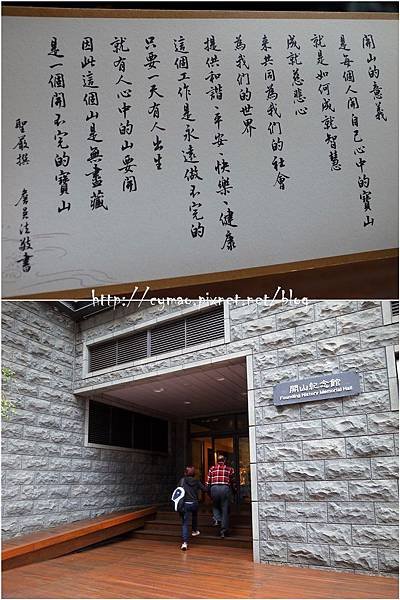 開山的意義
是每個人開自己心中的寶山
就是如何成就智慧
成就慈悲心
來共同為我們的社會
為我們的世界
提供和諧、平安、快樂、健康
這個工作是永遠做不完的
只要一天有人出生
就有人心中的山要開
因此這個山是無盡藏
是一個開不完的寶山
聖嚴撰
敬書
http://cymao.pixnet.net/blog
開山紀念館
Founding History Memorial Hall